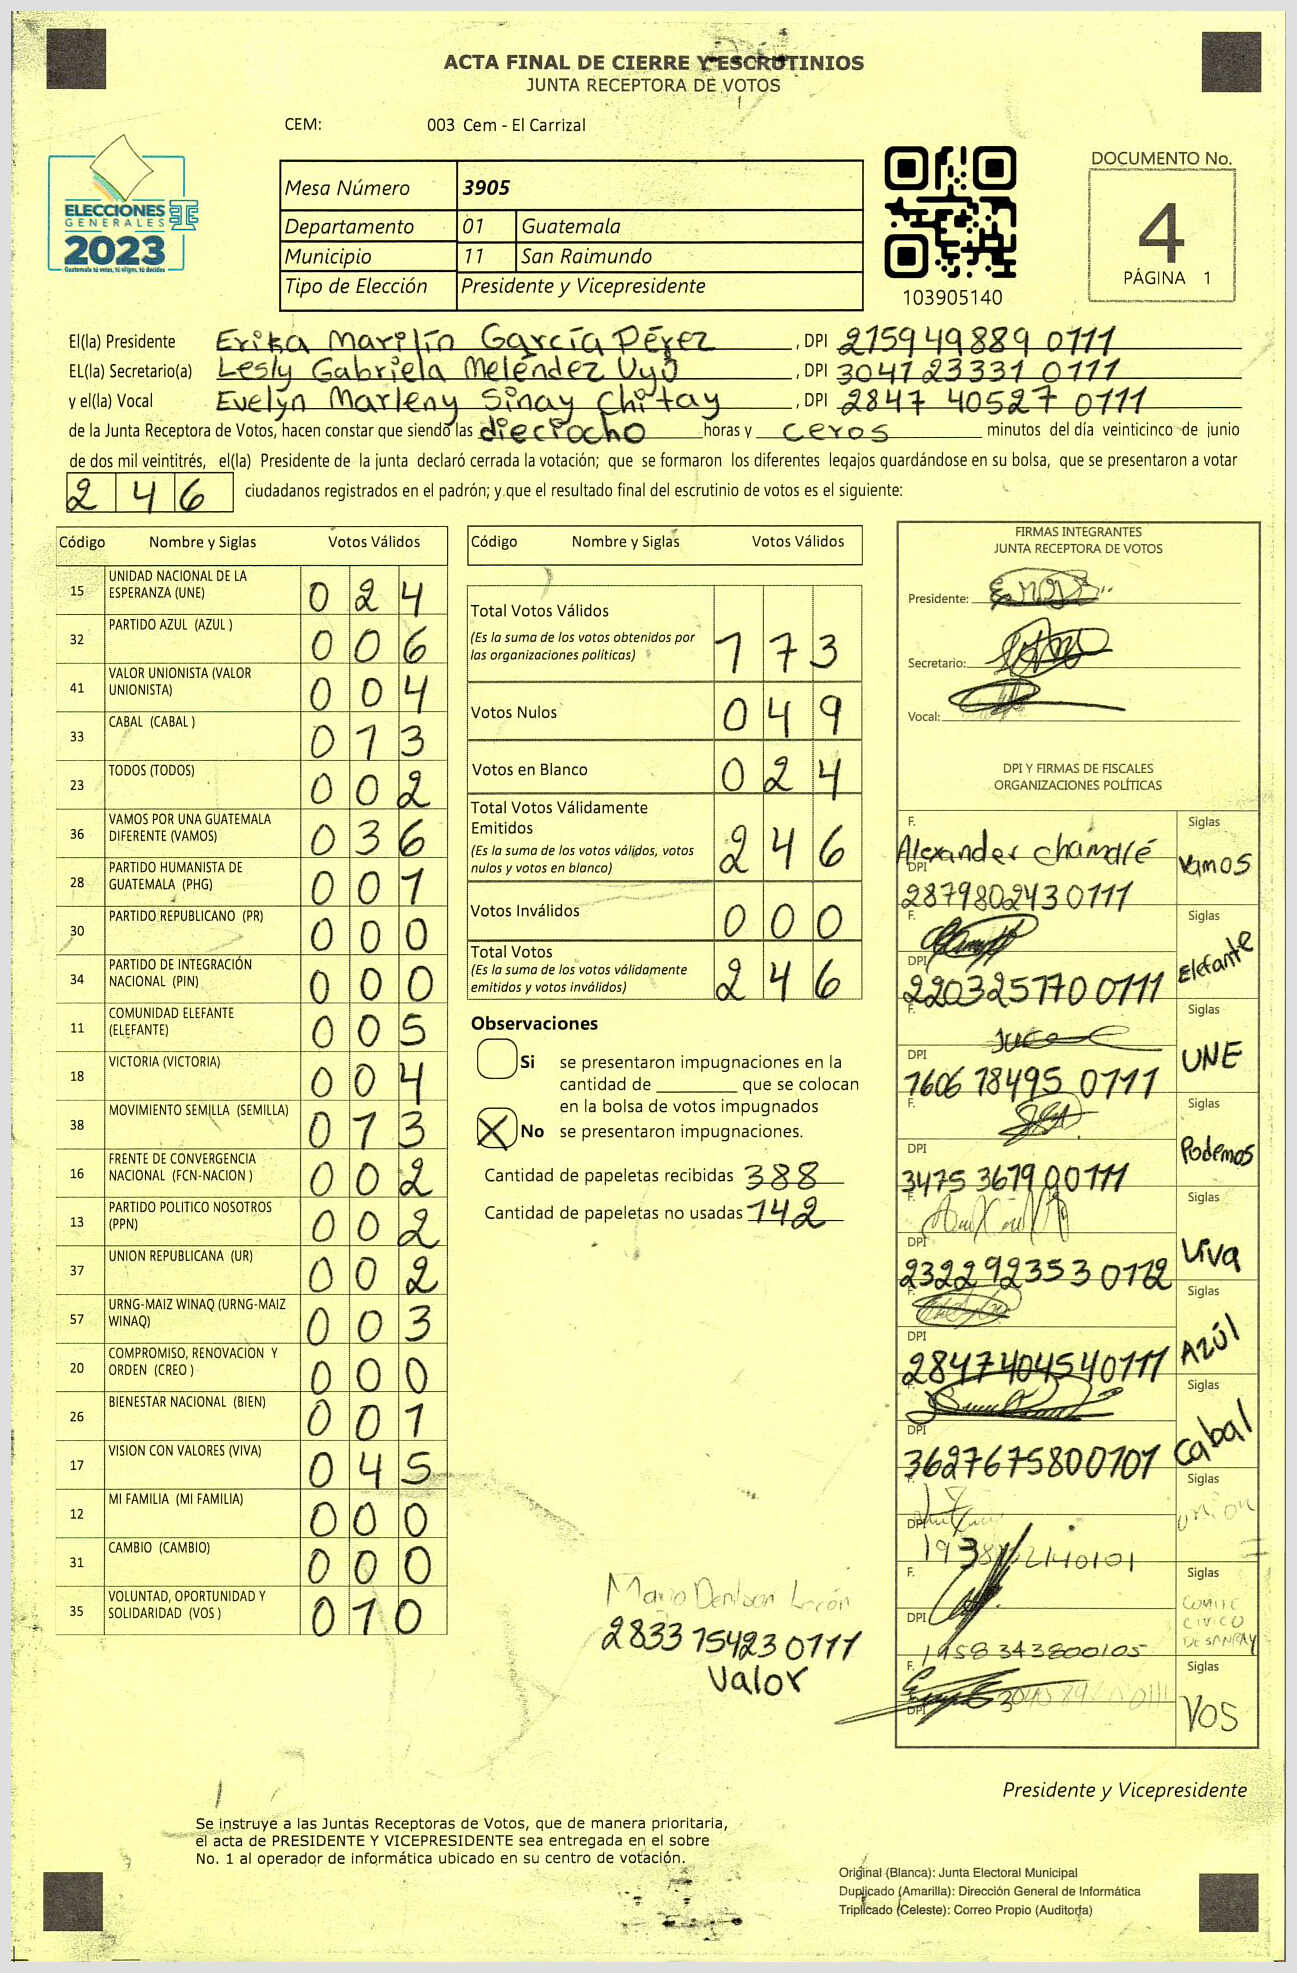 ACTA FINAL DE CIERRE Y ESCRUTINIOS
JUNTA RECEPTORA DE VOTOS
CEM: 003 Cem - El Carrizal
ELECCIONES
GENERALES
2023
Guatemala tú votas, tú eliges, tú decides
Mesa Número 3905
Departamento 01 Guatemala
Municipio 11 San Raimundo
Tipo de Elección Presidente y Vicepresidente
103905140
DOCUMENTO No.
4
PÁGINA 1
El(la) Presidente Erika Marilín García Pérez, DPI 215949889 0111
EL(la) Secretario(a) Lesly Gabriela Meléndez Uyú, DPI 304123331 0111
y el(la) Vocal Evelyn Marleny Sinay Chitay, DPI 2847 40527 0111
de la Junta Receptora de Votos, hacen constar que siendo las dieciocho horas y ceros minutos del día veinticinco de junio
de dos mil veintitrés, el(la) Presidente de la junta declaró cerrada la votación; que se formaron los diferentes legajos guardándose en su bolsa, que se presentaron a votar
246 ciudadanos registrados en el padrón; y que el resultado final del escrutinio de votos es el siguiente:
Código Nombre y Siglas Votos Válidos
15 UNIDAD NACIONAL DE LA ESPERANZA (UNE) 024
32 PARTIDO AZUL (AZUL ) 006
41 VALOR UNIONISTA (VALOR UNIONISTA) 004
33 CABAL (CABAL ) 013
23 TODOS (TODOS) 002
36 VAMOS POR UNA GUATEMALA DIFERENTE (VAMOS) 036
28 PARTIDO HUMANISTA DE GUATEMALA (PHG) 001
30 PARTIDO REPUBLICANO (PR) 000
34 PARTIDO DE INTEGRACIÓN NACIONAL (PIN) 000
11 COMUNIDAD ELEFANTE (ELEFANTE) 005
18 VICTORIA (VICTORIA) 004
38 MOVIMIENTO SEMILLA (SEMILLA) 013
16 FRENTE DE CONVERGENCIA NACIONAL (FCN-NACION ) 002
13 PARTIDO POLITICO NOSOTROS (PPN) 002
37 UNION REPUBLICANA (UR) 002
57 URNG-MAIZ WINAQ (URNG-MAIZ WINAQ) 003
20 COMPROMISO, RENOVACION Y ORDEN (CREO ) 000
26 BIENESTAR NACIONAL (BIEN) 001
17 VISION CON VALORES (VIVA) 045
12 MI FAMILIA (MI FAMILIA) 000
31 CAMBIO (CAMBIO) 000
35 VOLUNTAD, OPORTUNIDAD Y SOLIDARIDAD (VOS ) 010
Código Nombre y Siglas Votos Válidos
Total Votos Válidos 173
(Es la suma de los votos obtenidos por
las organizaciones políticas)
Votos Nulos 049
Votos en Blanco 024
Total Votos Válidamente
Emitidos 246
(Es la suma de los votos válidos, votos
nulos y votos en blanco)
Votos Inválidos 000
Total Votos 246
(Es la suma de los votos válidamente
emitidos y votos inválidos)
Observaciones
Si se presentaron impugnaciones en la
cantidad de ________ que se colocan
en la bolsa de votos impugnados
X No se presentaron impugnaciones.
Cantidad de papeletas recibidas 388
Cantidad de papeletas no usadas 142
2833 15423 0111
Valor
FIRMAS INTEGRANTES
JUNTA RECEPTORA DE VOTOS
Presidente:
Secretario:
Vocal:
DPI Y FIRMAS DE FISCALES
ORGANIZACIONES POLÍTICAS
F. Alexander Chamalé Siglas Vamos
DPI 287980243 0111
F. Siglas Elefante
DPI 220325770 0111
F. Siglas UNE
DPI 1606 18495 0111
F. Siglas Podemos
DPI 3475 36790 0111
F. Siglas Viva
DPI 232292353 0112
F. Siglas AZÚL
DPI 2847404540111
F. Siglas Cabal
DPI 3627675800101
F. Siglas UNION
DPI
F. Siglas COMITE
CIVICO
DE SANRAY
DPI 1958343800105
F. Siglas VOS
DPI
Presidente y Vicepresidente
Se instruye a las Juntas Receptoras de Votos, que de manera prioritaria,
el acta de PRESIDENTE Y VICEPRESIDENTE sea entregada en el sobre
No. 1 al operador de informática ubicado en su centro de votación.
Original (Blanca): Junta Electoral Municipal
Duplicado (Amarilla): Dirección General de Informática
Triplicado (Celeste): Correo Propio (Auditoría)